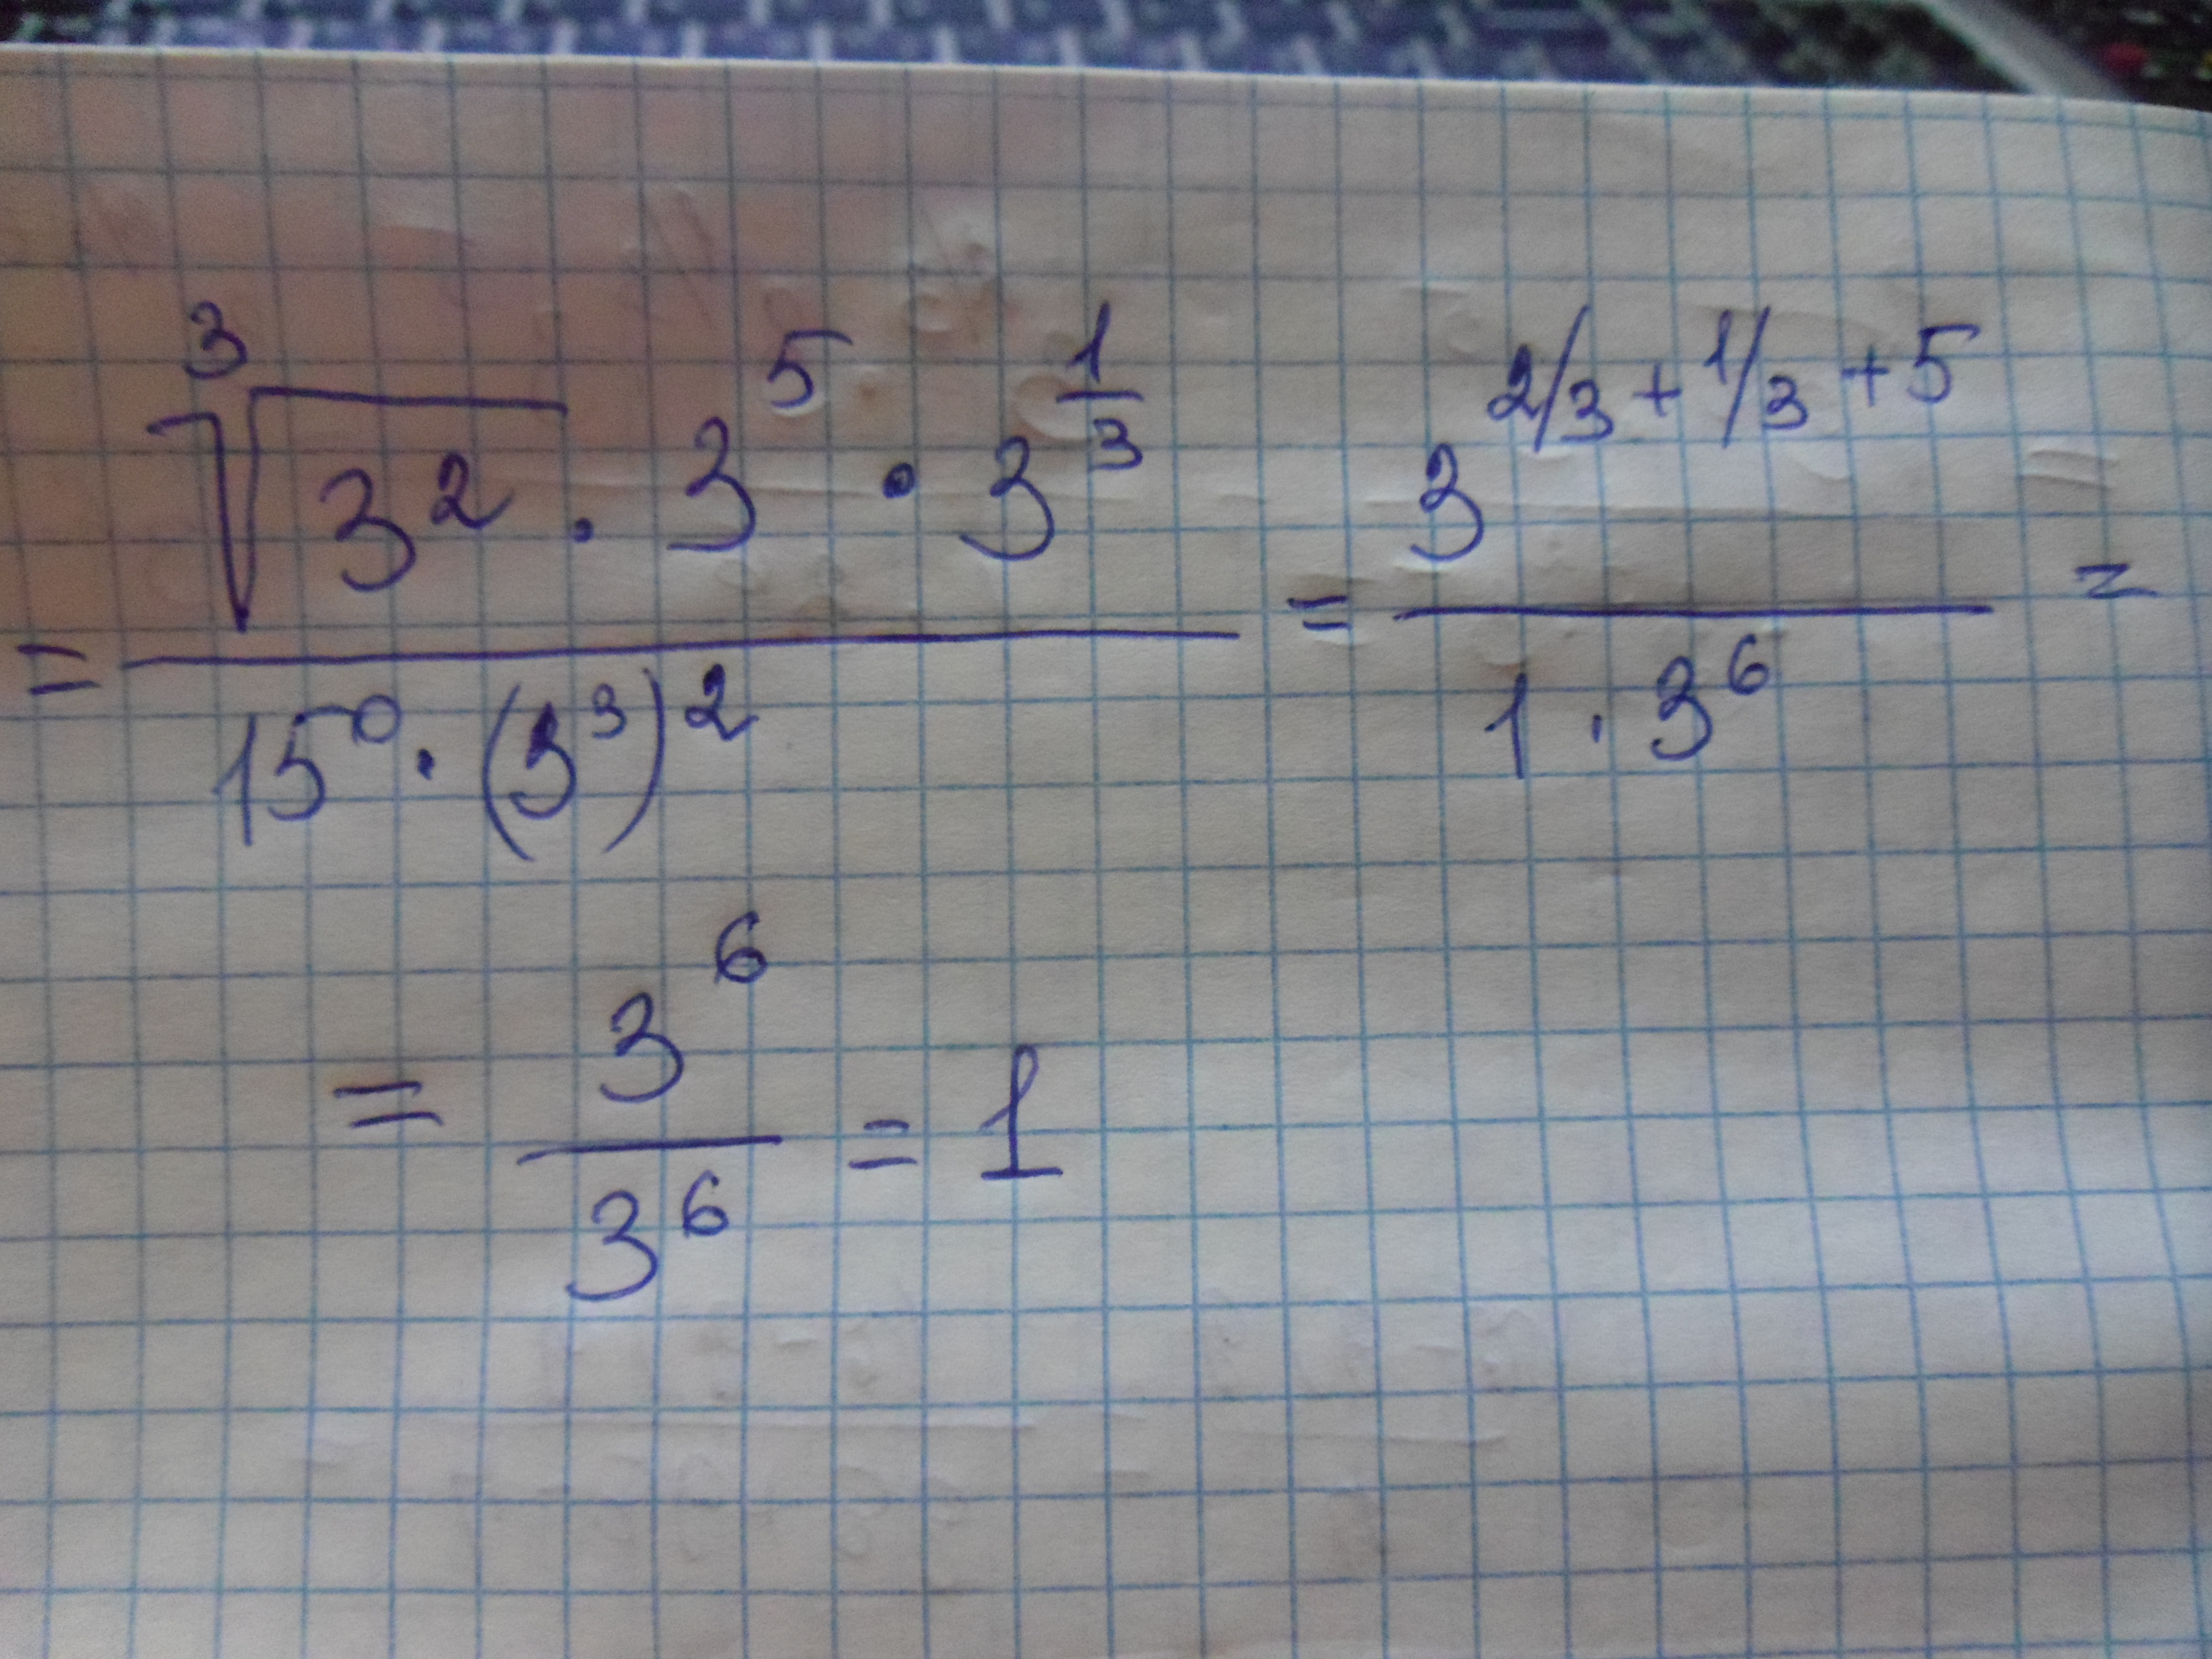 = ∛(3²) · 3⁵ · 3^(1/3) / 15⁰ · (3³)² = 3^(2/3 + 1/3 + 5) / 1 · 3⁶ =
= 3⁶ / 3⁶ = 1